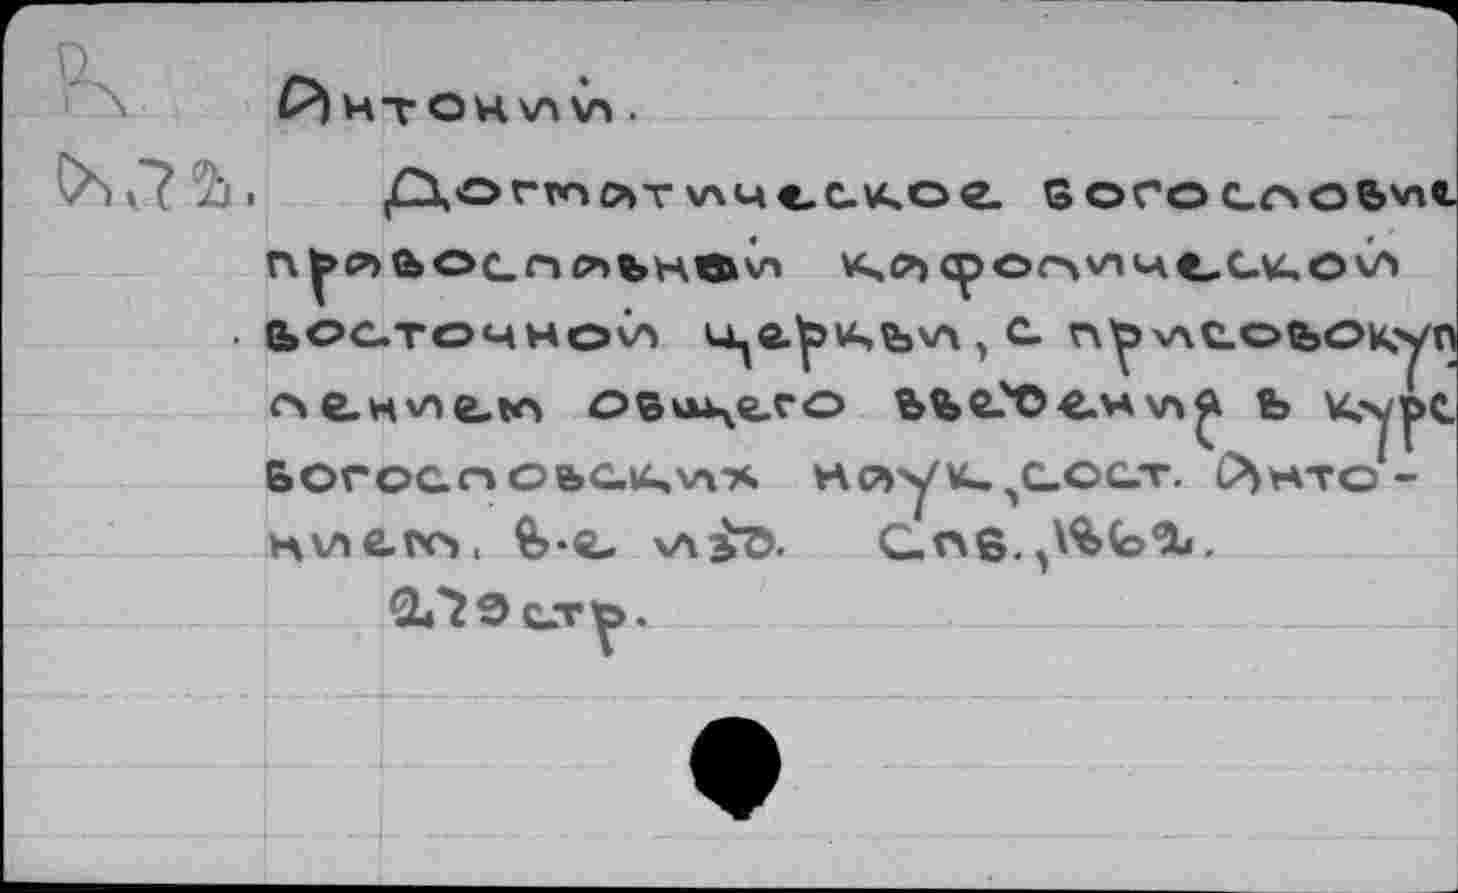 Антоний.
Догматическое богословие
православной кафолической
восточной церкви, с присовокуп
лением общего введения в курс
богословских наук, сост. Анто-
нием. 8-е изд. Спб., 1862.
279 стр.